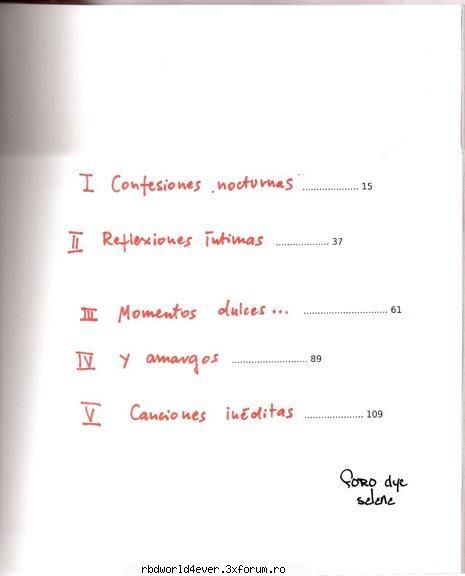 I Confesiones nocturnas .................... 15
II Reflexiones íntimas ................... 37
III Momentos dulces... .............................. 61
IV Y amargos ........................... 89
V Canciones inéditas ..................... 109
FORO dye
selene
rbdworld4ever.3xforum.ro